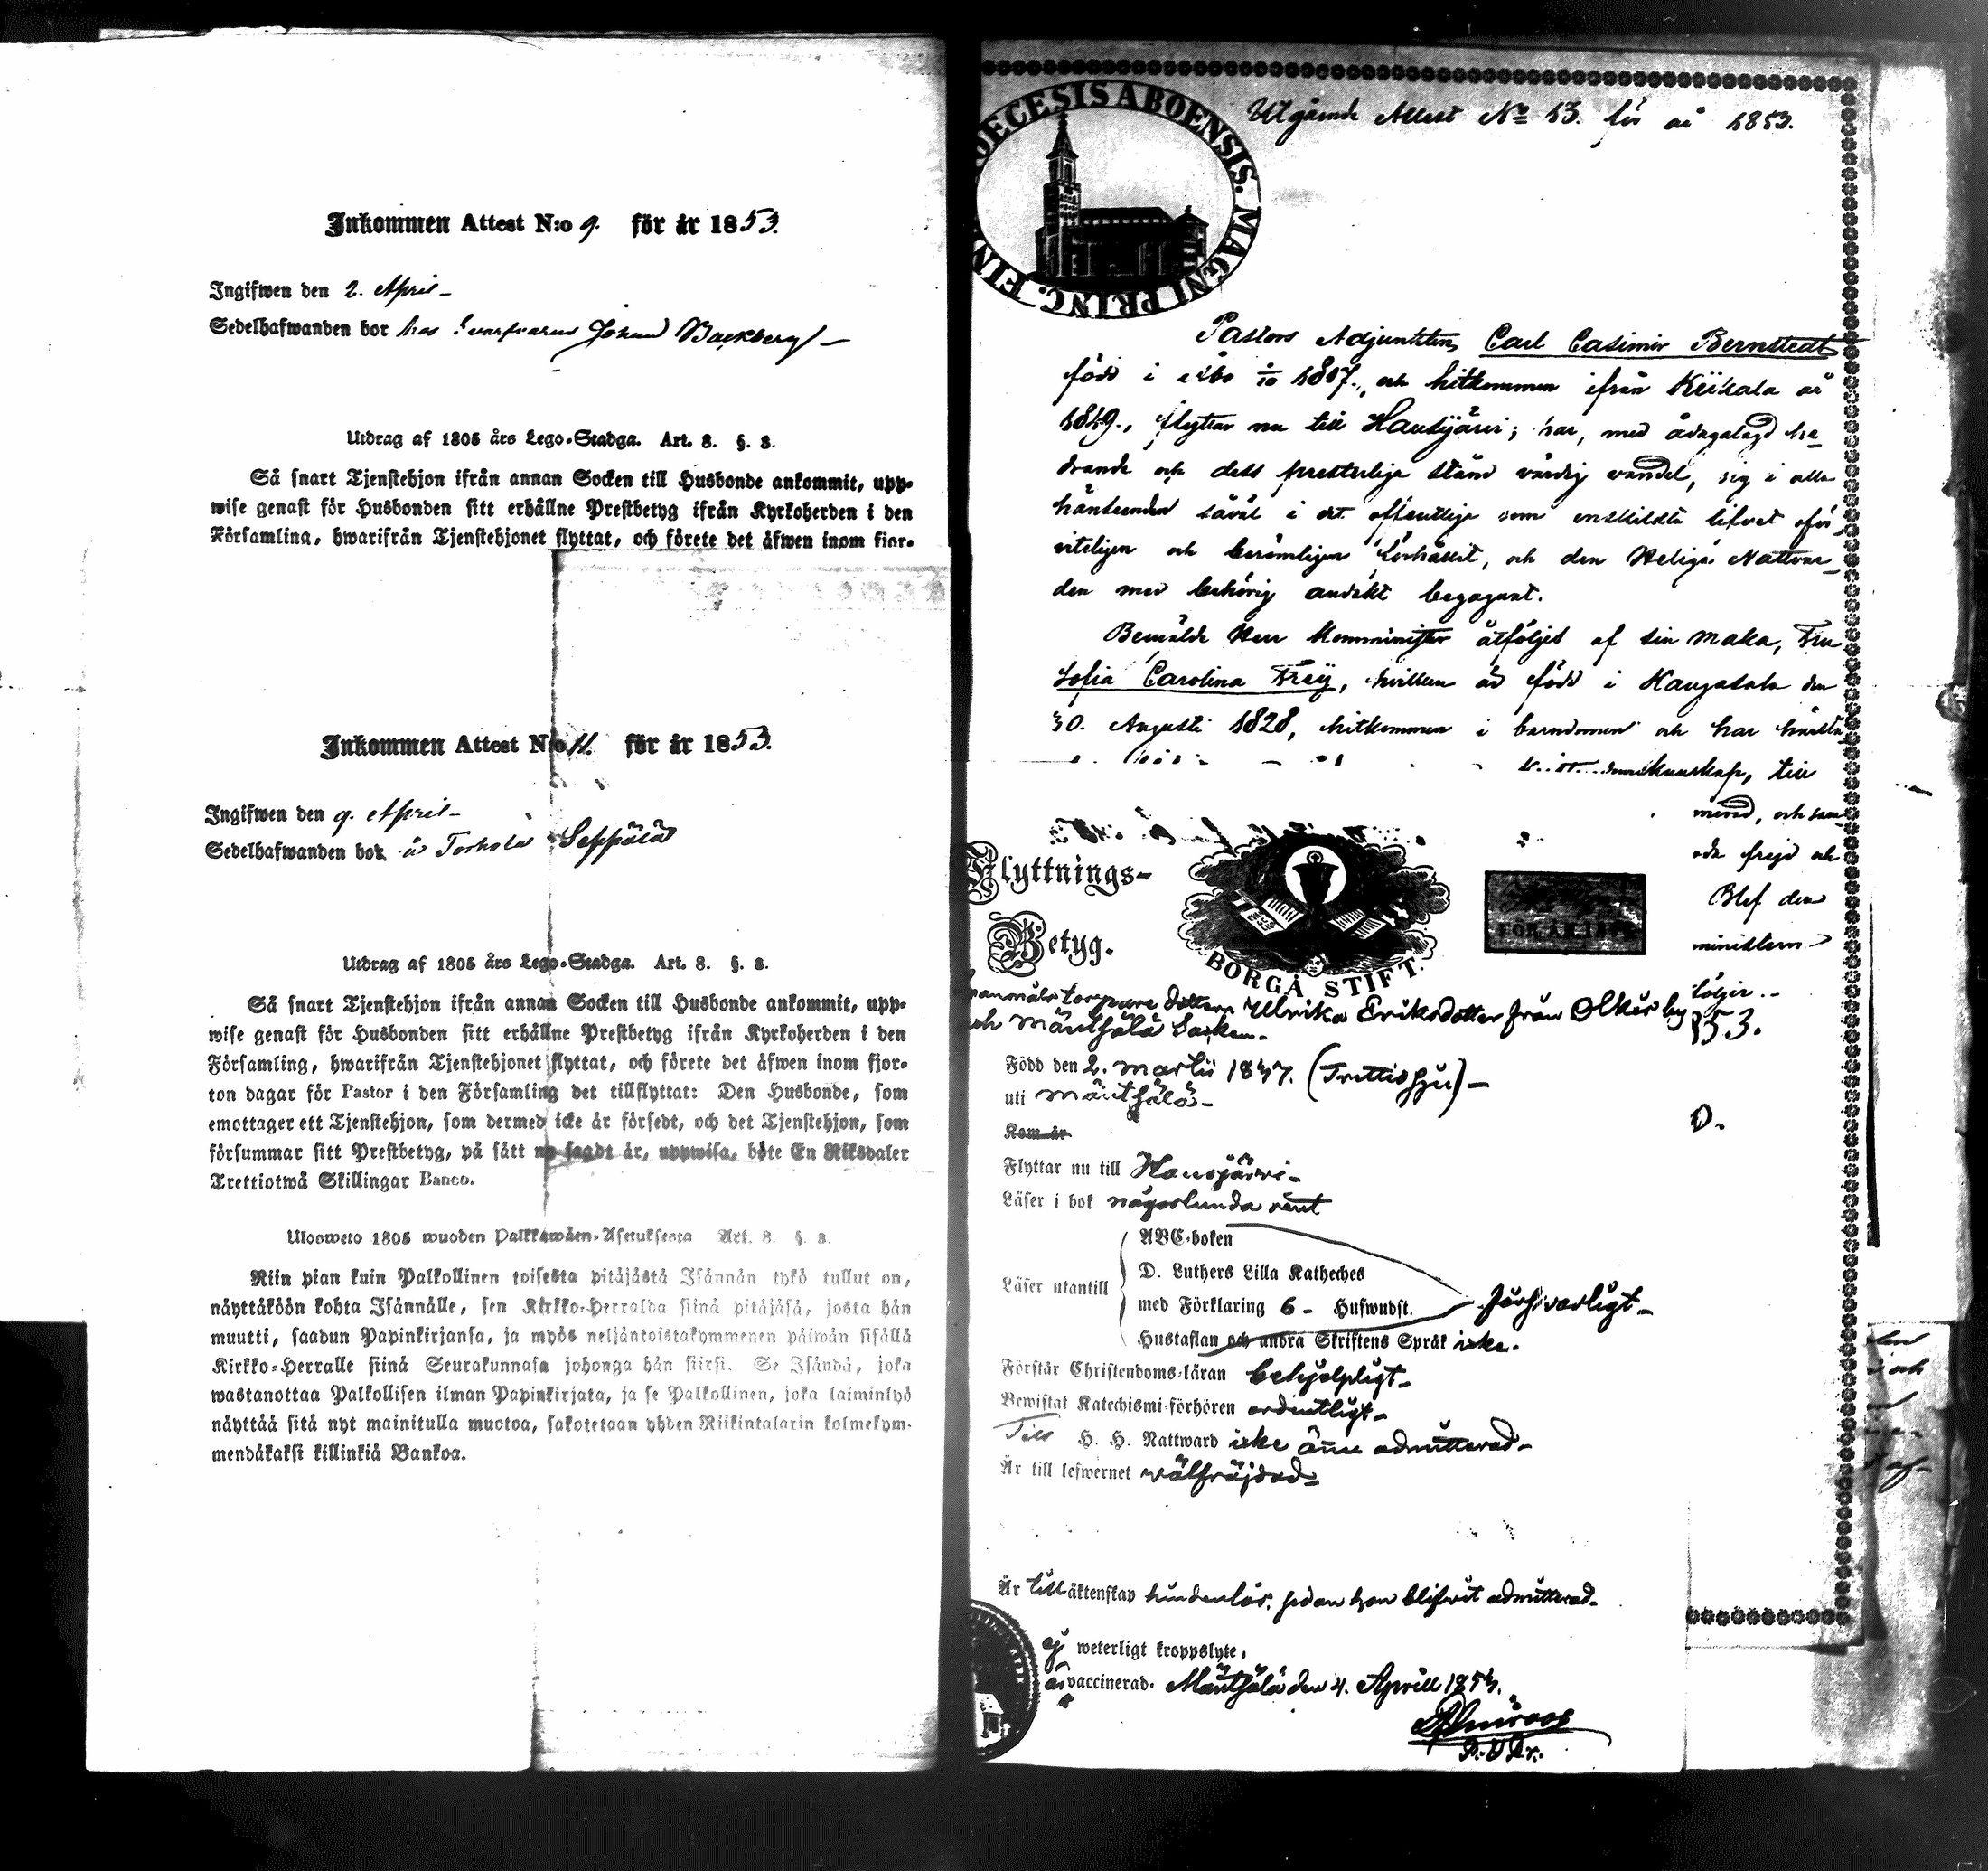 Inkommen Attest N:o 9. för år 1853.
Ingifwen den 2. April
Sedelhafwanden bor hos Johan Backberg
Utdrag af 1805 års Lego-Stadga. Art. 8. §. 8.
Så snart Tjenstehjon ifrån annan Socken till Husbonde ankommit, upp-
wise genast för Husbonden sitt erhållne Prestbetyg ifrån Kyrkoherden i den
Församling, hwarifrån Tjenstehjonet flyttat, och förete det äfwen inom fjor-
Inkommen Attest N:o 11. för år 1853.
Ingifwen den 9. April
Sedelhafwanden bor å Torhola Seppälä
Utdrag af 1805 års Lego-Stadga. Art. 8. §. 8.
Så snart Tjenstehjon ifrån annan Socken till Husbonde ankommit, upp-
wise genast för Husbonden sitt erhållne Prestbetyg ifrån Kyrkoherden i den
Församling, hwarifrån Tjenstehjonet flyttat, och förete det äfwen inom fjor-
ton dagar för Pastor i den Församling det tillflyttat: Den Husbonde, som
emottager ett Tjenstehjon, som dermed icke är försedt, och det Tjenstehjon, som
försummar sitt Prestbetyg, på sätt nu sagdt är, uppwisa, böte En Riksdaler
Trettiotwå Skillingar Banco.
Ulosweto 1805 wuoden Palkkawäen-Asetuksesta Art. 8. §. 8.
Niin pian kuin Palkollinen toisesta pitäjästä Isännän tykö tullut on,
näyttäköön kohta Isännälle, sen Kirkko-Herralda siinä pitäjäsä, josta hän
muutti, saadun Papinkirjansa, ja myös neljäntoistakymmenen päiwän sisällä
Kirkko-Herralle siinä Seurakunnasa johonga hän siirsi. Se Isändä, joka
wastanottaa Palkollisen ilman Papinkirjata, ja se Palkollinen, joka laiminlyö
näyttää sitä nyt mainitulla muotoa, sakotetaan yhden Riikintalarin kolmekym-
mendäkaksi killinkiä Bankoa.
Utgående Attest No 13. för år 1853.
DIOECESIS ABOENSIS. MAGNI PRINC. FIN
Pastors Adjunkten Carl Casimir Bernstedt
född i Åbo 1807., och hitkommen ifrån Kiikala år
1849., flyttar nu till Hausjärvi; har, med ådagalagd he-
drande och dess presterliga stånd värdig vandel, sig i alla
hänseenden såväl i det offentliga som enskildta lifvet oför-
viteligen och berömligen förhållit, och den Heliga Nattvar-
den med behörig andakt begagnat.
Bemälde Herr Komminister åtföljes af sin maka, Fru
Sofia Carolina Frey, hvilken är född i Kangasala den
30. Augusti 1828, hitkommen i barndomen och har
kunskap, till
och sam-
frejd och
Blef den
ministern
följer
1853.
D.
Flyttnings-
Betyg.
BORGÅ STIFT.
torpare dottern Ulrika Eriksdotter från Olkis by
och Mäntsälä Socken.
Född den 2. Martii 1837. (Trettisju)
uti Mäntsälä
Kom år
Flyttar nu till Hausjärvi
Läser i bok någorlunda rent
Läser utantill
ABC-boken
D. Luthers Lilla Katheches
med Förklaring 6 Hufwudst.
Hustaflan och andra Skriftens Språk icke.
försvarligt
Förstår Christendoms-läran behjelpligt
Bewistat Katechismi-förhören ordentligt
Till H. H. Nattward icke ännu admitterad
Är till lefwernet wälfräjdad
Är till äktenskap hinderlös, sedan hon blifvit admitterad
ej weterligt kroppslyte,
är vaccinerad. Mäntsälä den 4. Aprill 1853.